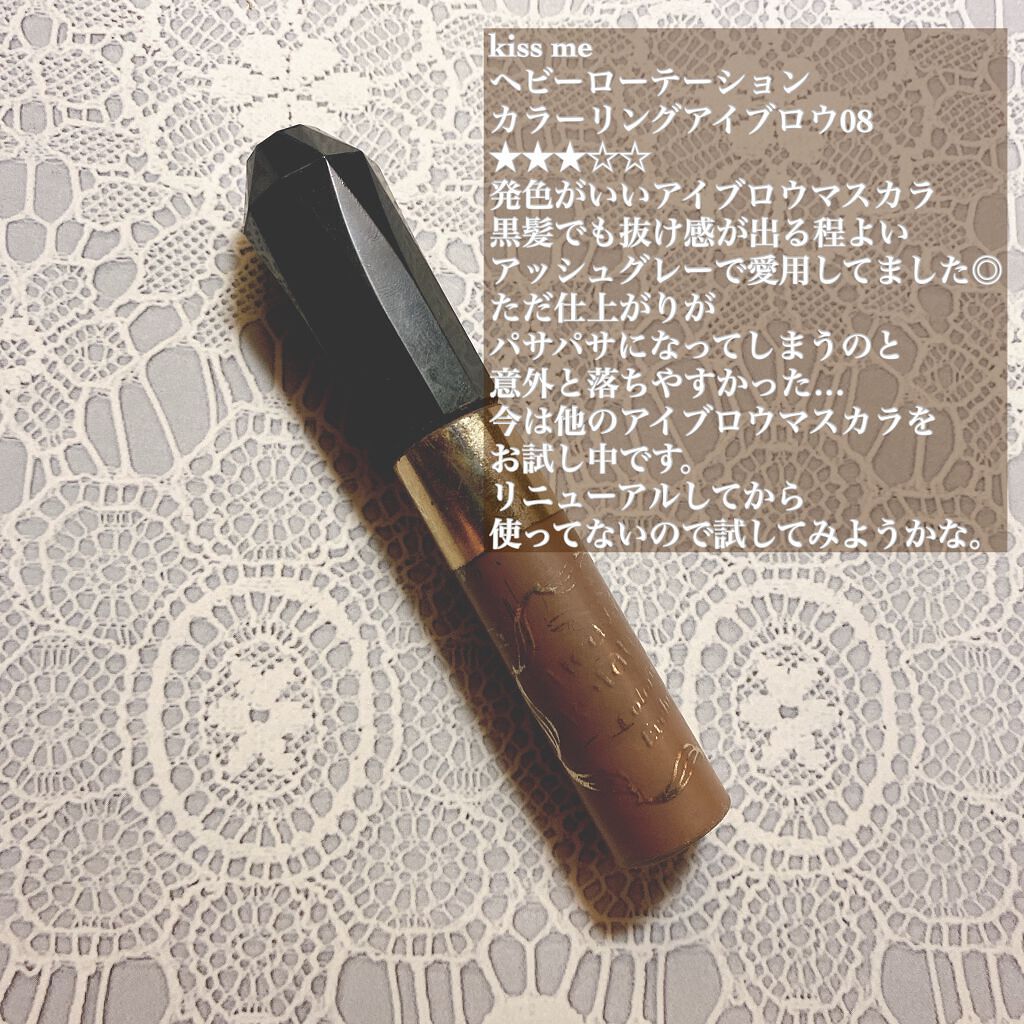 kiss me
ヘビーローテーション
カラーリングアイブロウ08
★★★☆☆
発色がいいアイブロウマスカラ
黒髪でも抜け感が出る程よい
アッシュグレーで愛用してました◎
ただ仕上がりが
パサパサになってしまうのと
意外と落ちやすかった…
今は他のアイブロウマスカラを
お試し中です。
リニューアルしてから
使ってないので試してみようかな。